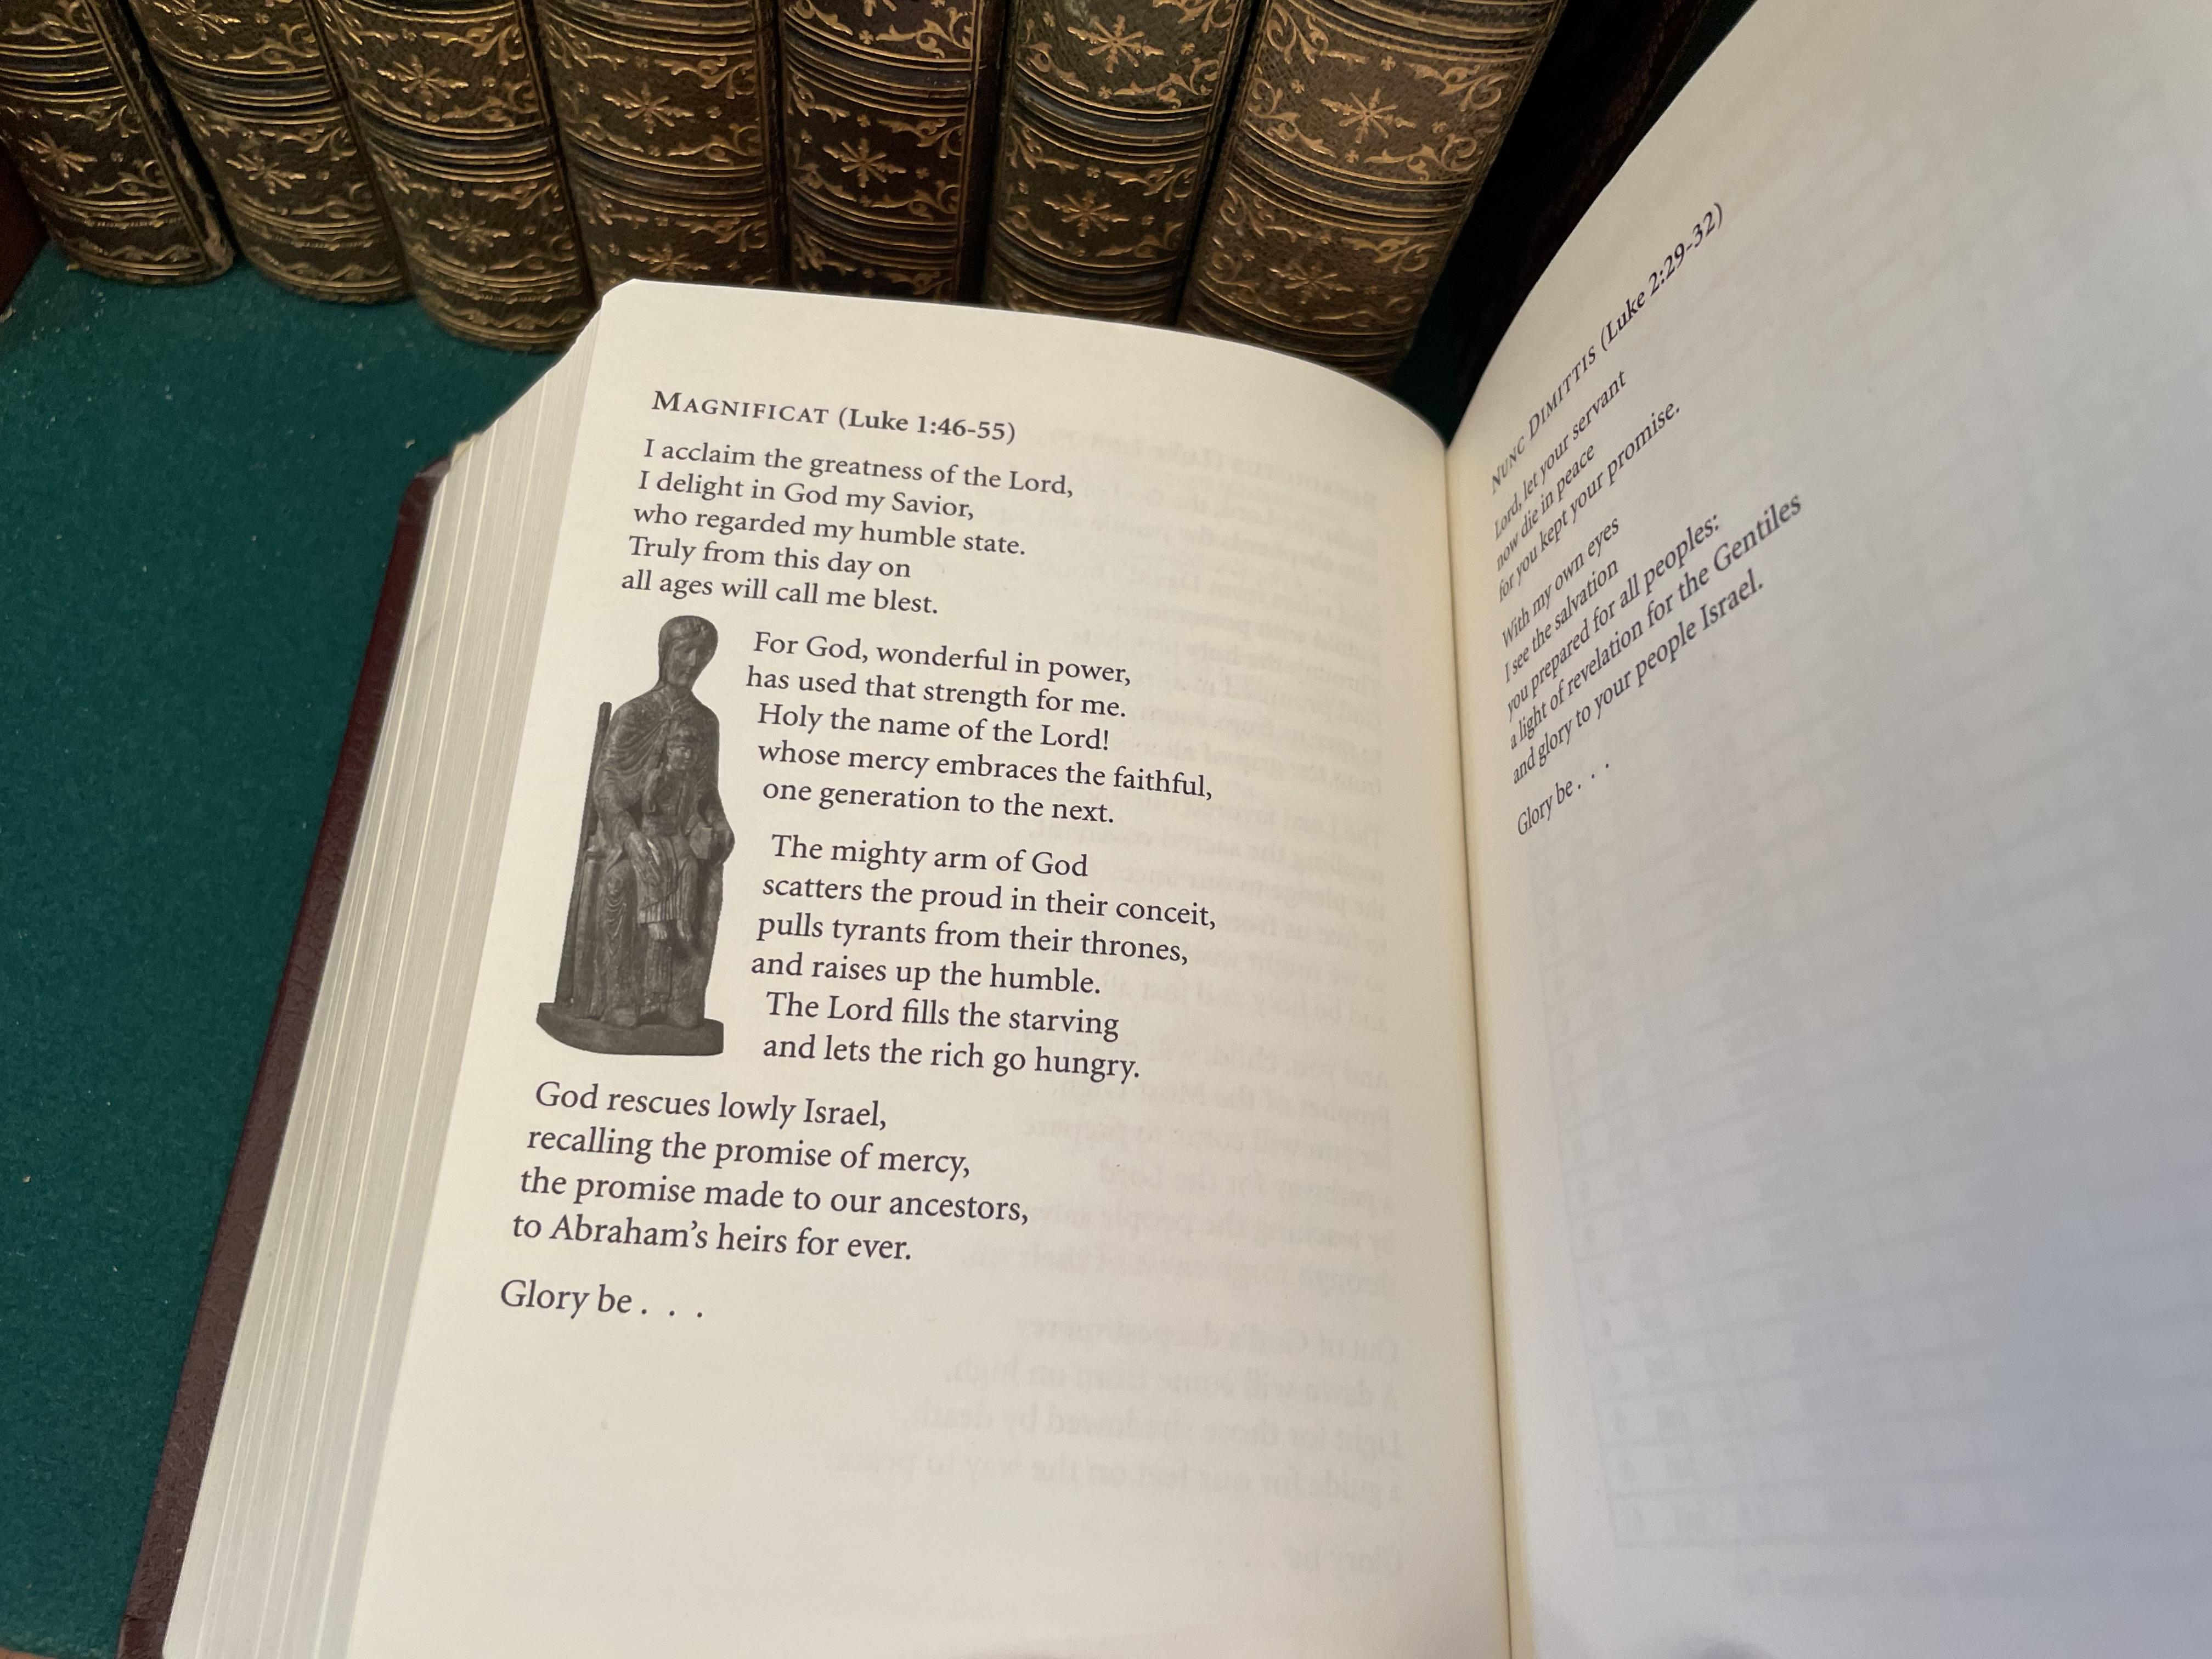 MAGNIFICAT (Luke 1:46-55)
I acclaim the greatness of the Lord,
I delight in God my Savior,
who regarded my humble state.
Truly from this day on
all ages will call me blest.
For God, wonderful in power,
has used that strength for me.
Holy the name of the Lord!
whose mercy embraces the faithful,
one generation to the next.
The mighty arm of God
scatters the proud in their conceit,
pulls tyrants from their thrones,
and raises up the humble.
The Lord fills the starving
and lets the rich go hungry.
God rescues lowly Israel,
recalling the promise of mercy,
the promise made to our ancestors,
to Abraham's heirs for ever.
Glory be . . .
NUNC DIMITTIS (Luke 2:29-32)
Lord, let your servant
now die in peace
for you kept your promise.
With my own eyes
I see the salvation
you prepared for all peoples:
a light of revelation for the Gentiles
and glory to your people Israel.
Glory be . . .